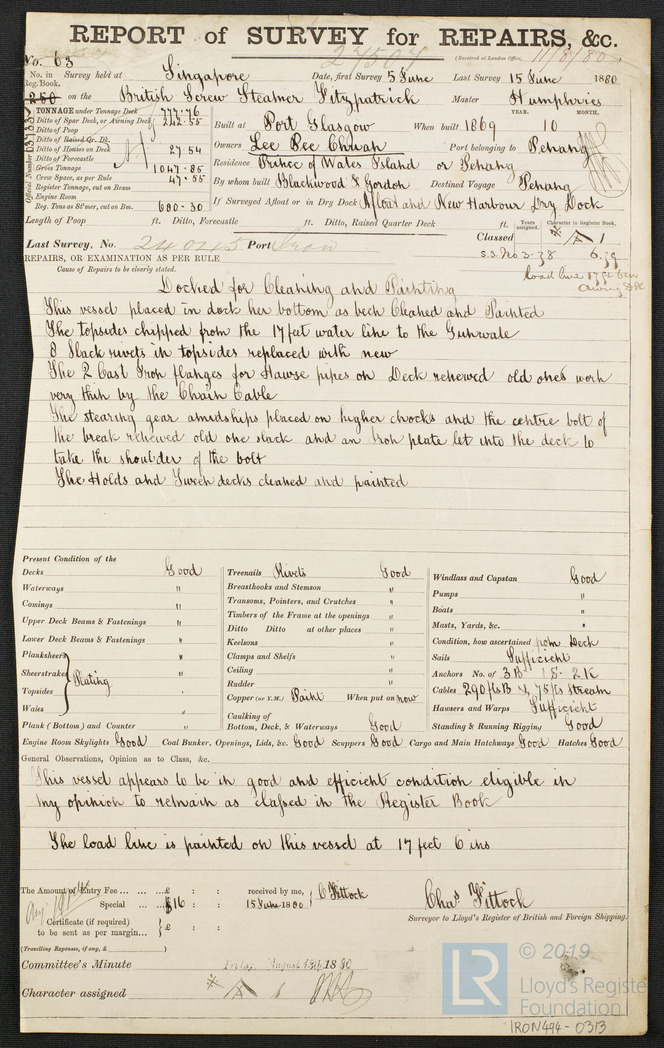 REPORT of SURVEY for REPAIRS, &c.
No. 63
(Received at London Office, 11/8/80
No. in Reg. Book. Survey held at Singapore Date, first Survey 5 June Last Survey 15 June 1880
250 on the British Screw Steamer Fitzpatrick Master Humphries
TONNAGE under Tonnage Deck 777.76
Ditto of Spar Deck, or Awning Deck 242.55
Ditto of Poop
Ditto of Raised Qr. Dk.
Ditto of Houses on Deck 27.54
Ditto of Forecastle
Gross Tonnage 1047.85
Crew Space, as per Rule 47.55
Register Tonnage, cut on Beam
Engine Room
Reg. Tons as St'mer, cut on Bm. 680.30
Official Number
Built at Port Glasgow When built 1869 10
YEAR. MONTH.
Owners Lee Pee Chuah Port belonging to Penang
Residence Prince of Wales Island or Penang
By whom built Blackwood & Gordon Destined Voyage Penang
If Surveyed Afloat or in Dry Dock Afloat and New Harbour Dry Dock
Length of Poop ft. Ditto, Forecastle ft. Ditto, Raised Quarter Deck ft.
Years assigned. Character in Register Book,
Classed A 1
Last Survey, No. 24045 Port Iron
S.S. No 3-78 6.79
load line 17ft 6in
REPAIRS, OR EXAMINATION AS PER RULE
Cause of Repairs to be clearly stated.
Docked for Cleaning and Painting
This vessel placed in dock her bottom as bech Cleaned and Painted
The topsides chipped from the 17 feet water line to the Gunwale
8 Slack rivets in topsides replaced with new
The 2 Cast Iron flanges for Hawse pipes on Deck renewed old ones worn
very thin by the Chain Cable
The stearing gear amidships placed on higher chocks and the centre bolt of
the break renewed old one slack and an Iron plate let into the deck to
take the shoulder of the bolt
The Holds and Tween decks cleaned and painted
Present Condition of the
Decks Good
Waterways "
Comings "
Upper Deck Beams & Fastenings "
Lower Deck Beams & Fastenings "
Planksheers "
Sheerstrakes Plating "
Topsides
Wales "
Plank (Bottom) and Counter "
Treenails Rivets Good
Breasthooks and Stemson "
Transoms, Pointers, and Crutches "
Timbers of the Frame at the openings "
Ditto Ditto at other places "
Keelsons "
Clamps and Shelfs "
Ceiling "
Rudder "
Copper (or Y.M.) Paint When put on now
Caulking of
Bottom, Deck, & Waterways Good
Windlass and Capstan Good
Pumps "
Boats "
Masts, Yards, &c. "
Condition, how ascertained from Deck
Sails Sufficient
Anchors No. of 3B 1S. 2K
Cables 290 fts B & 75 fts Stream
Hawsers and Warps Sufficient
Standing & Running Rigging Good
Engine Room Skylights Good Coal Bunker, Openings, Lids, &c. Good Scuppers Good Cargo and Main Hatchways Good Hatches Good
General Observations, Opinion as to Class, &c.
This vessel appears to be in good and efficient condition eligible in
my opinion to remain as classed in the Register Book
The load line is painted on this vessel at 17 feet 6 ins
The Amount of Entry Fee ... ... ...£ : : received by me, C Fittock
Special ... ...$16 : : 15 June 1880
Certificate (if required)
to be sent as per margin... £ : :
(Travelling Expenses, if any, £ )
Chas. Fittock
Surveyor to Lloyd's Register of British and Foreign Shipping.
Committee's Minute August 1880
Character assigned A 1
© 2019
LR Lloyd's Register
Foundation
IRON494-0313